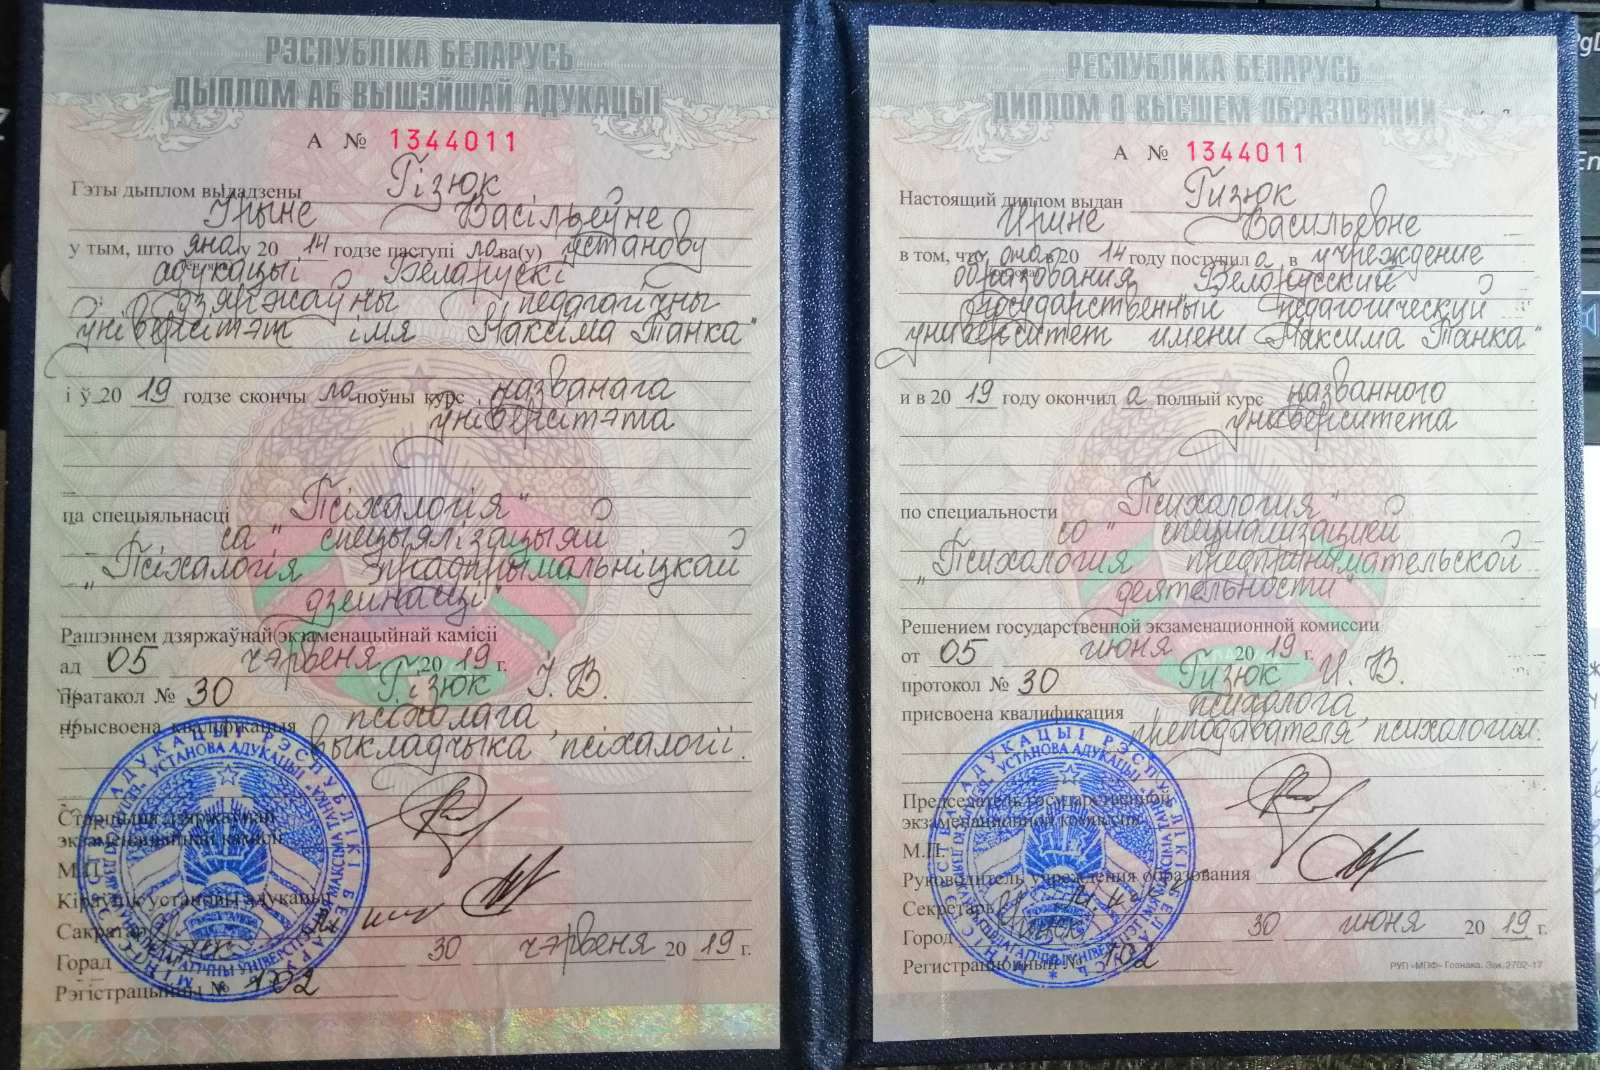 РЭСПУБЛІКА БЕЛАРУСЬ
ДЫПЛОМ АБ ВЫШЭЙШАЙ АДУКАЦЫІ
А № 1344011
Гэты дыплом выдадзены Гізюк
Ірыне Васільеўне
у тым, што яна у 20 14 годзе паступі ла ва(у) ўстанову
адукацыі "Беларускі
дзяржаўны педагагічны
ўніверсітэт імя Максіма Танка"
і ў 20 19 годзе скончы ла поўны курс названага
ўніверсітэта
па спецыяльнасці "Псіхалогія"
са спецыялізацыяй
"Псіхалогія прадпрымальніцкай
дзейнасці"
Рашэннем дзяржаўнай экзаменацыйнай камісіі
ад 05 чэрвеня 20 19 г.
пратакол № 30 Гізюк І. В.
прысвоена кваліфікацыя псіхолага,
выкладчыка псіхалогіі.
Старшыня дзяржаўнай
экзаменацыйнай камісіі
М.П.
Кіраўнік установы адукацыі
Сакратар
Горад Мінск 30 чэрвеня 20 19 г.
Рэгістрацыйны № 102
РЕСПУБЛИКА БЕЛАРУСЬ
ДИПЛОМ О ВЫСШЕМ ОБРАЗОВАНИИ
А № 1344011
Настоящий диплом выдан Гизюк
Ирине Васильевне
в том, что она в 20 14 году поступил а в учреждение
образования "Белорусский
государственный педагогический
университет имени Максима Танка"
и в 20 19 году окончил а полный курс названного
университета
по специальности "Психология"
со специализацией
"Психология предпринимательской
деятельности"
Решением государственной экзаменационной комиссии
от 05 июня 20 19 г.
протокол № 30 Гизюк И. В.
присвоена квалификация психолога,
преподавателя психологии.
Председатель государственной
экзаменационной комиссии
М.П.
Руководитель учреждения образования
Секретарь
Город Минск 30 июня 20 19 г.
Регистрационный № 102
РУП «МПФ» Гознака. Зак. 2702-17